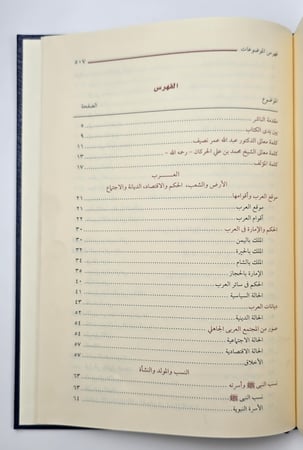 فهرس الموضوعات ٥٠٧
الفهرس
الموضوع الصفحة
مقدمة الناشر ٥
بين يدى الكتاب ٨
كلمة معالى الدكتور عبد الله عمر نصيف ١١
كلمة معالى الشيخ محمد بن على الحركان - رحمه الله - ١٣
كلمة المؤلف ١٧
العـــرب
الأرض والشعب، الحكم والاقتصاد، الديانة والاجتماع
موقع العرب وأقوامها ٢١
موقع العرب ٢١
أقوام العرب ٢٢
الحكم والإمارة فى العرب ٣٠
الملك باليمن ٣٠
الملك بالحيرة ٣٢
الملك بالشام ٣٤
الإمارة بالحجاز ٣٥
الحكم فى سائر العرب ٤٠
الحالة السياسية ٤١
ديانات العرب ٤٣
الحالة الدينية ٥٢
صور من المجتمع العربى الجاهلي ٥٤
الحالة الاجتماعية ٥٤
الحالة الاقتصادية ٥٧
الأخلاق ٥٧
النسب والمولد والنشأة
نسب النبى ﷺ وأسرته ٦٣
نسب النبى ﷺ ٦٣
الأسرة النبوية ٦٤